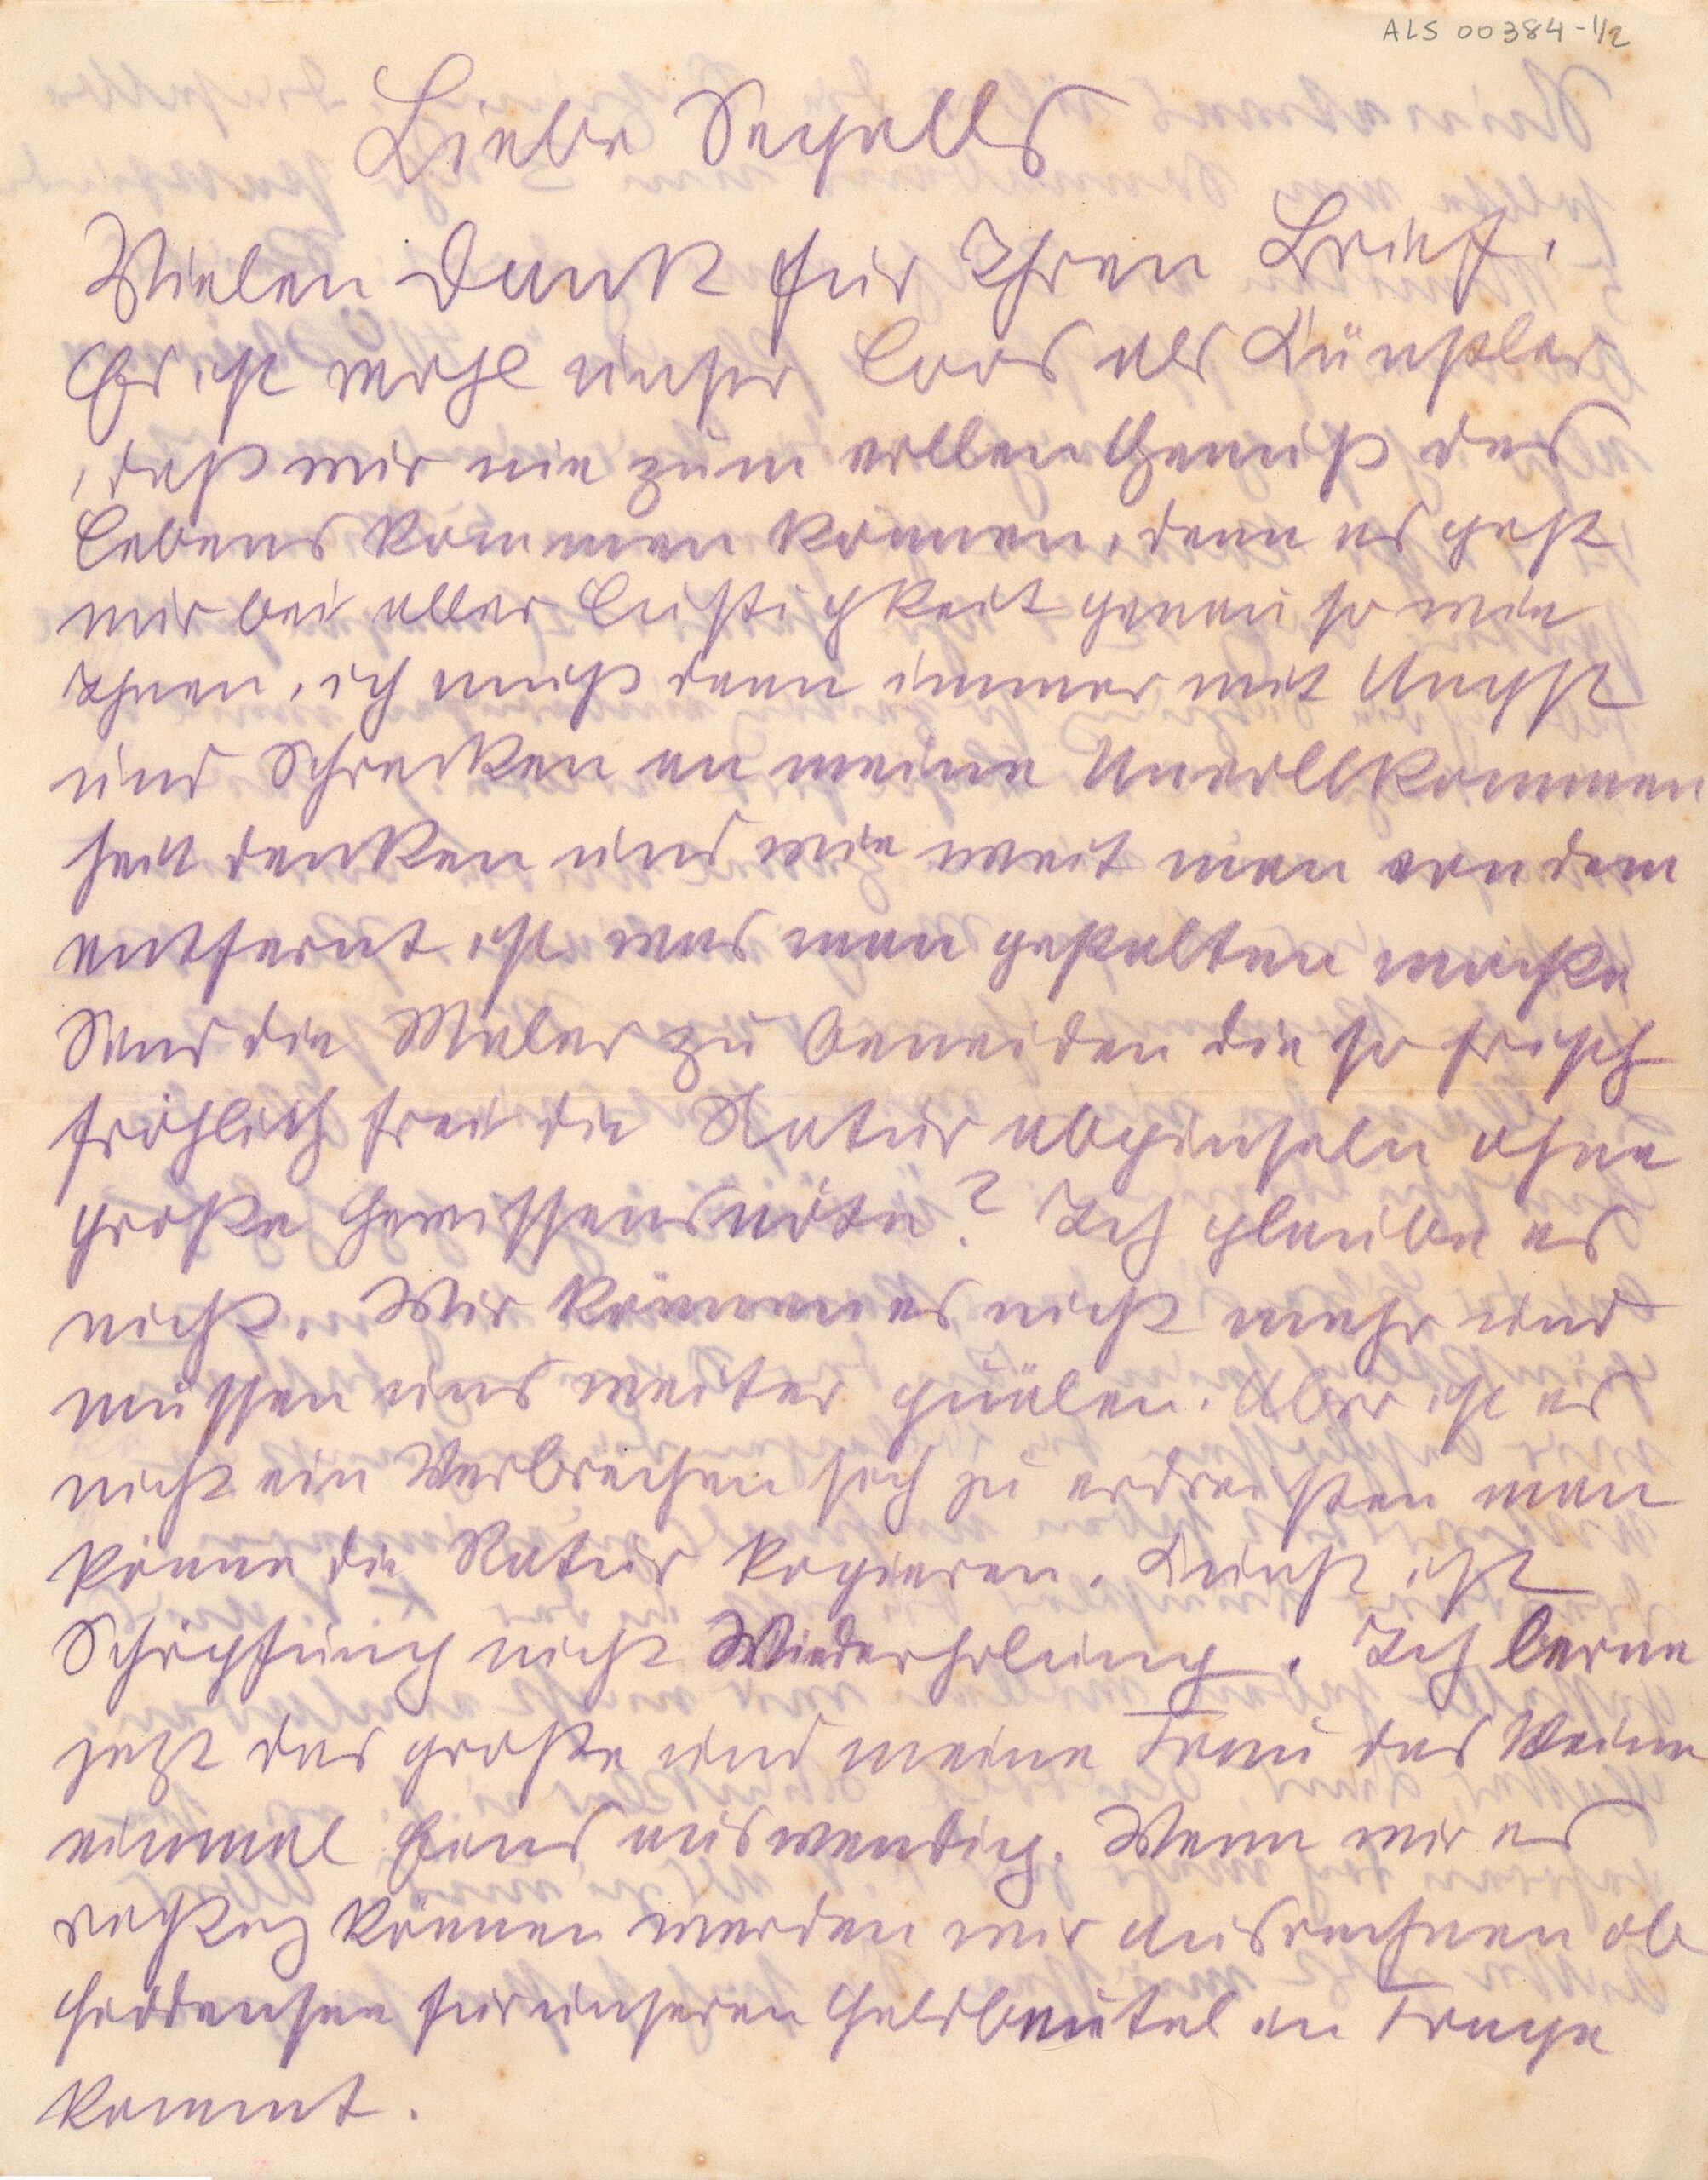 ALS 00384-1/2
Liebe Segalls
Vielen Dank für Ihren Brief.
Es ist wohl unser Loos als Künstler
, daß wir nie zum vollen Genuß des
Lebens kommen können, denn es geht
mir bei aller Lustigkeit genau so wie
Ihnen, ich muß dann immer mit Angst
und Schrecken an meine Unvollkommen
heit denken und wie weit man von dem
entfernt ist was man gestalten möchte
Sind die Maler zu beneiden die so frisch
fröhlich frei die Natur abpinseln ohne
große Gewissensnöte? Ich glaube es
nicht. Wir können es nicht mehr und
müssen uns weiter quälen. Aber ist es
nicht ein Verbrechen sich zu erdreisten man
könne die Natur kopieren. Kunst ist
Schöpfung nicht Wiederholung. Ich lerne
jetzt das große und meine Frau das kleine
einmal Eins auswendig. Wenn wir es
können werden wir ausrechnen ob
Hiddensee für unseren Geldbeutel in Frage
kommt.